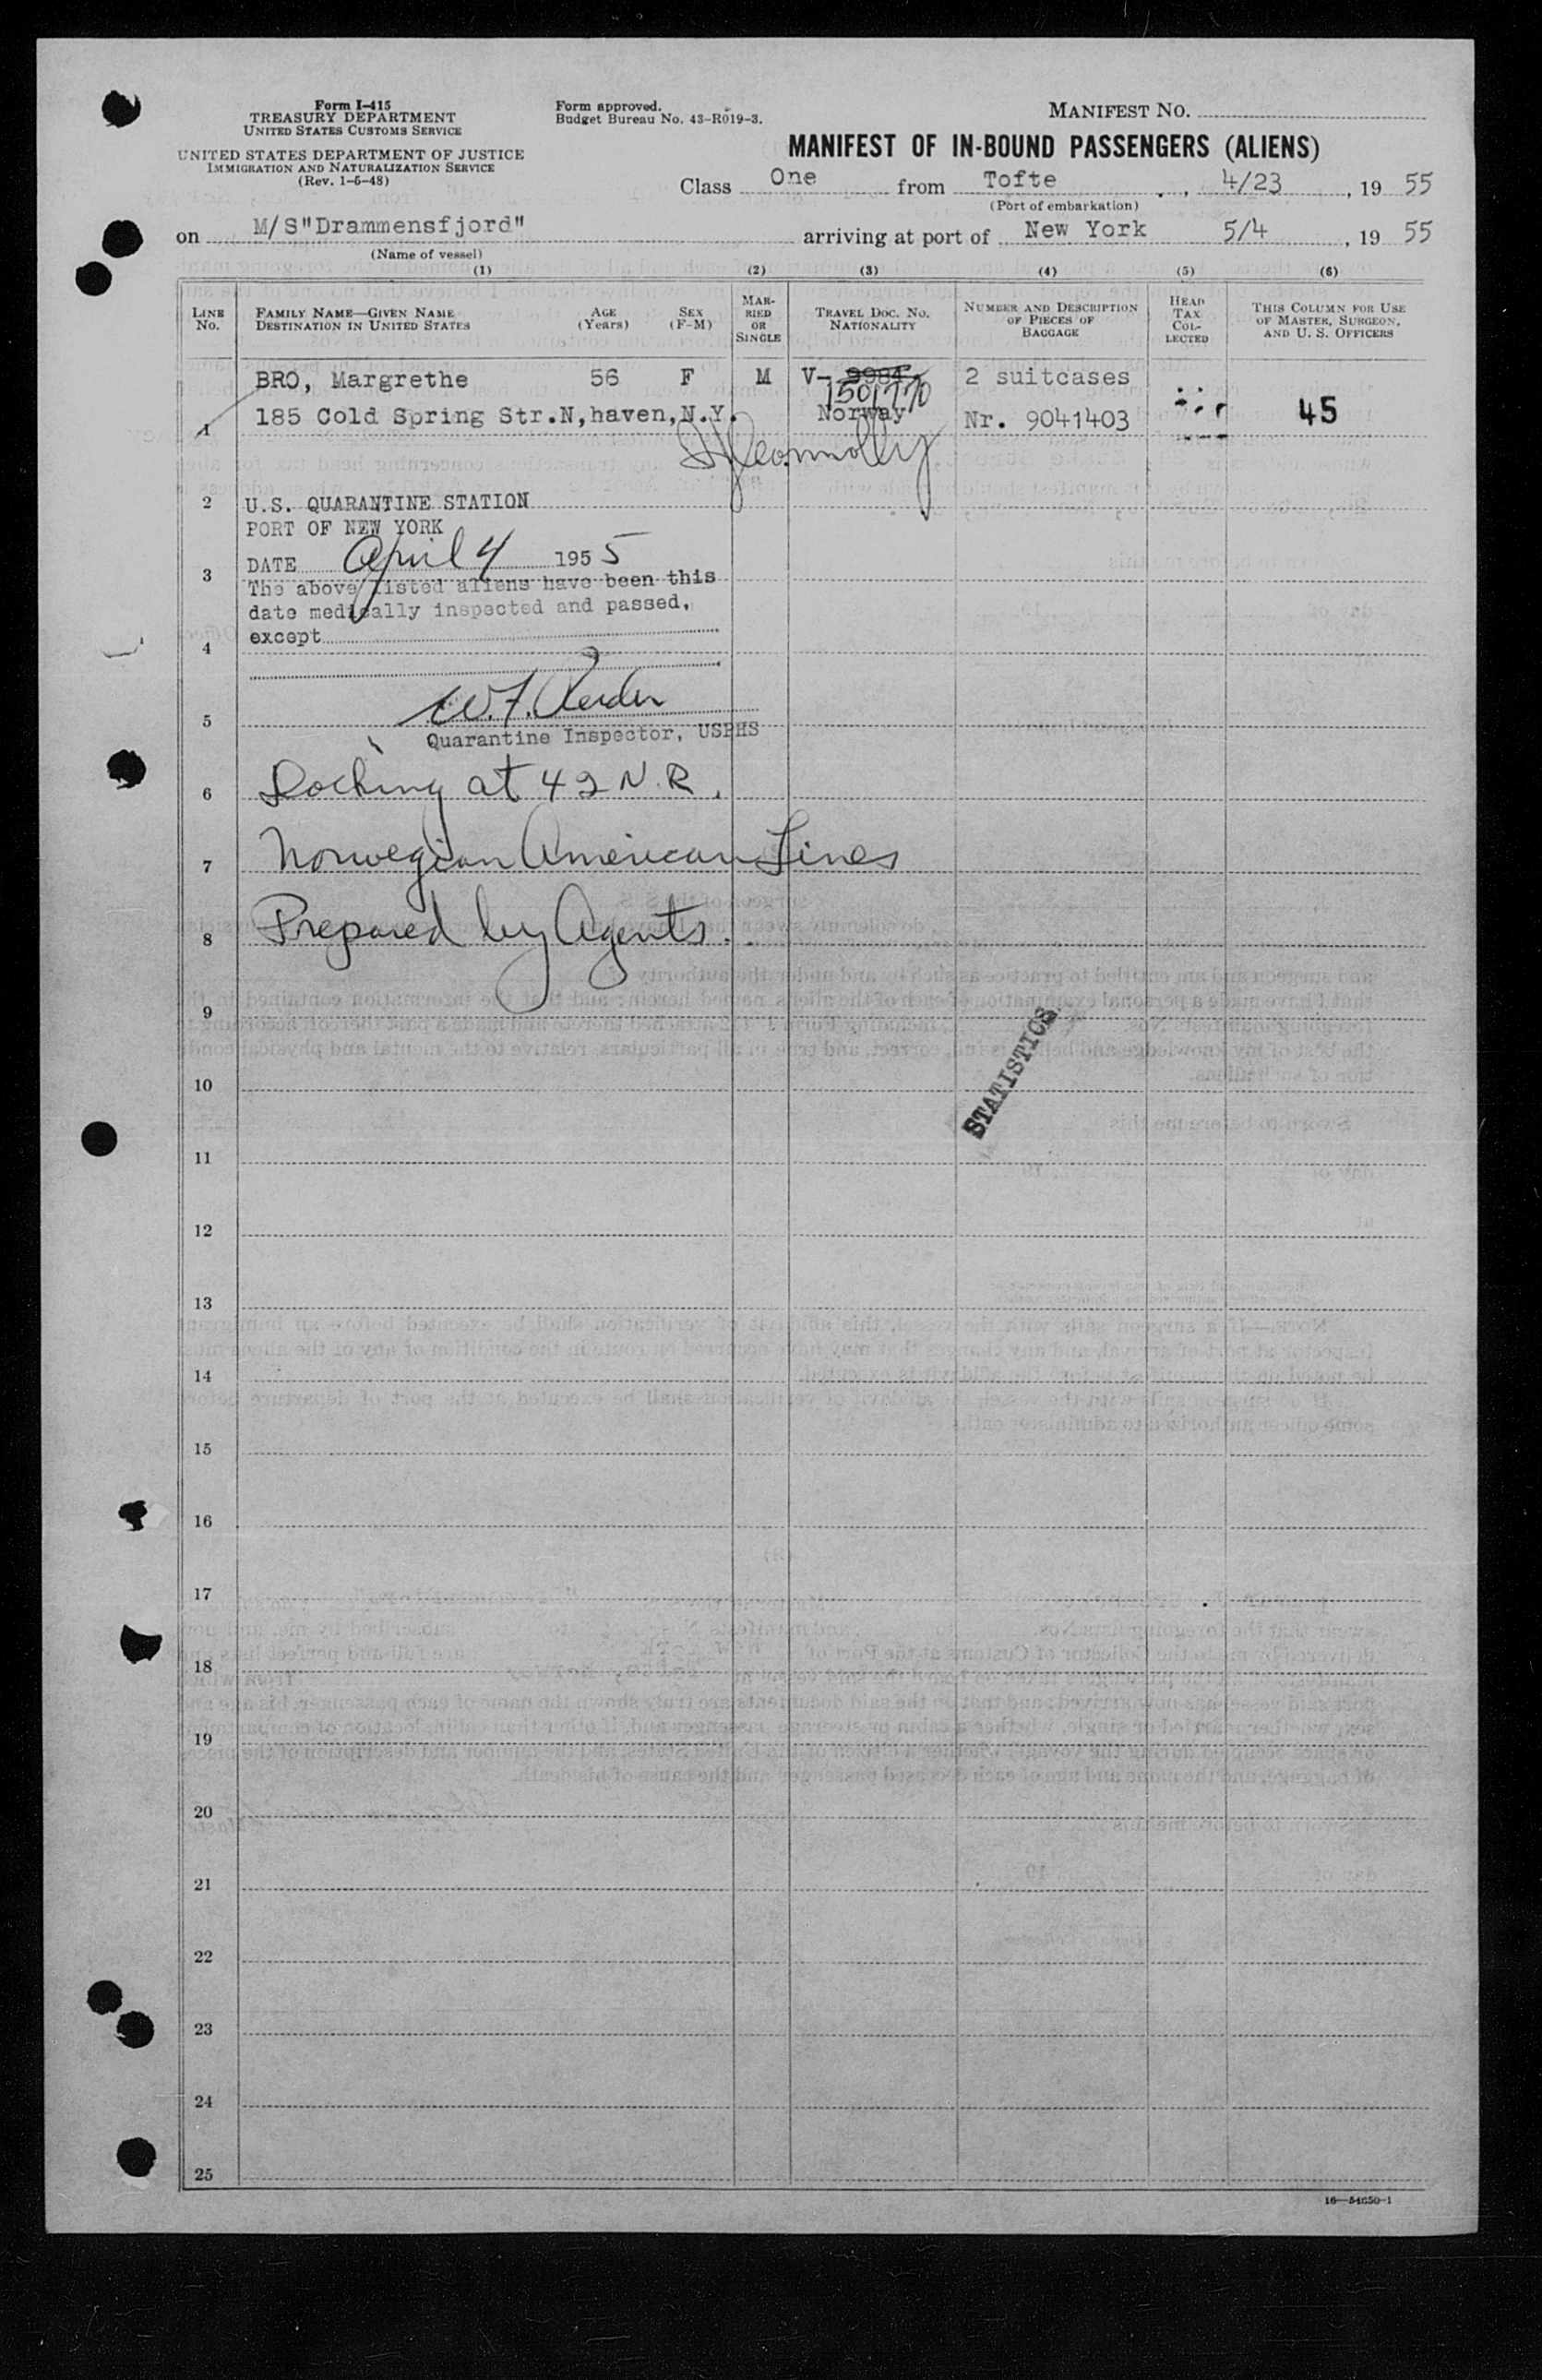 Form I-415
TREASURY DEPARTMENT
UNITED STATES CUSTOMS SERVICE
UNITED STATES DEPARTMENT OF JUSTICE
IMMIGRATION AND NATURALIZATION SERVICE
(Rev. 1-5-48)
Form approved.
Budget Bureau No. 43-R019-3.
MANIFEST NO.
MANIFEST OF IN-BOUND PASSENGERS (ALIENS)
Class One from Tofte, 4/23, 19 55
(Port of embarkation)
on M/S"Drammensfjord" arriving at port of New York 5/4, 19 55
(Name of vessel)
(1) (2) (3) (4) (5) (6)
LINE No.
FAMILY NAME—GIVEN NAME
DESTINATION IN UNITED STATES
AGE (Years)
SEX (F-M)
MARRIED OR SINGLE
TRAVEL DOC. NO.
NATIONALITY
NUMBER AND DESCRIPTION OF PIECES OF BAGGAGE
HEAD TAX COLLECTED
THIS COLUMN FOR USE OF MASTER, SURGEON, AND U. S. OFFICERS
BRO, Margrethe 56 F M V- 2 suitcases
1 185 Cold Spring Str.N,haven,N.Y. Norway Nr. 9041403 45
2 U.S. QUARANTINE STATION
PORT OF NEW YORK
DATE April 4 1955
3 The above listed aliens have been this
date medically inspected and passed,
except
4
5
Quarantine Inspector, USPHS
6 Docking at 42 N.R.
7 Norwegian American Lines
8 Prepared by Agents.
9
STATISTICS
10
11
12
13
14
15
16
17
18
19
20
21
22
23
24
25
16—54650-1